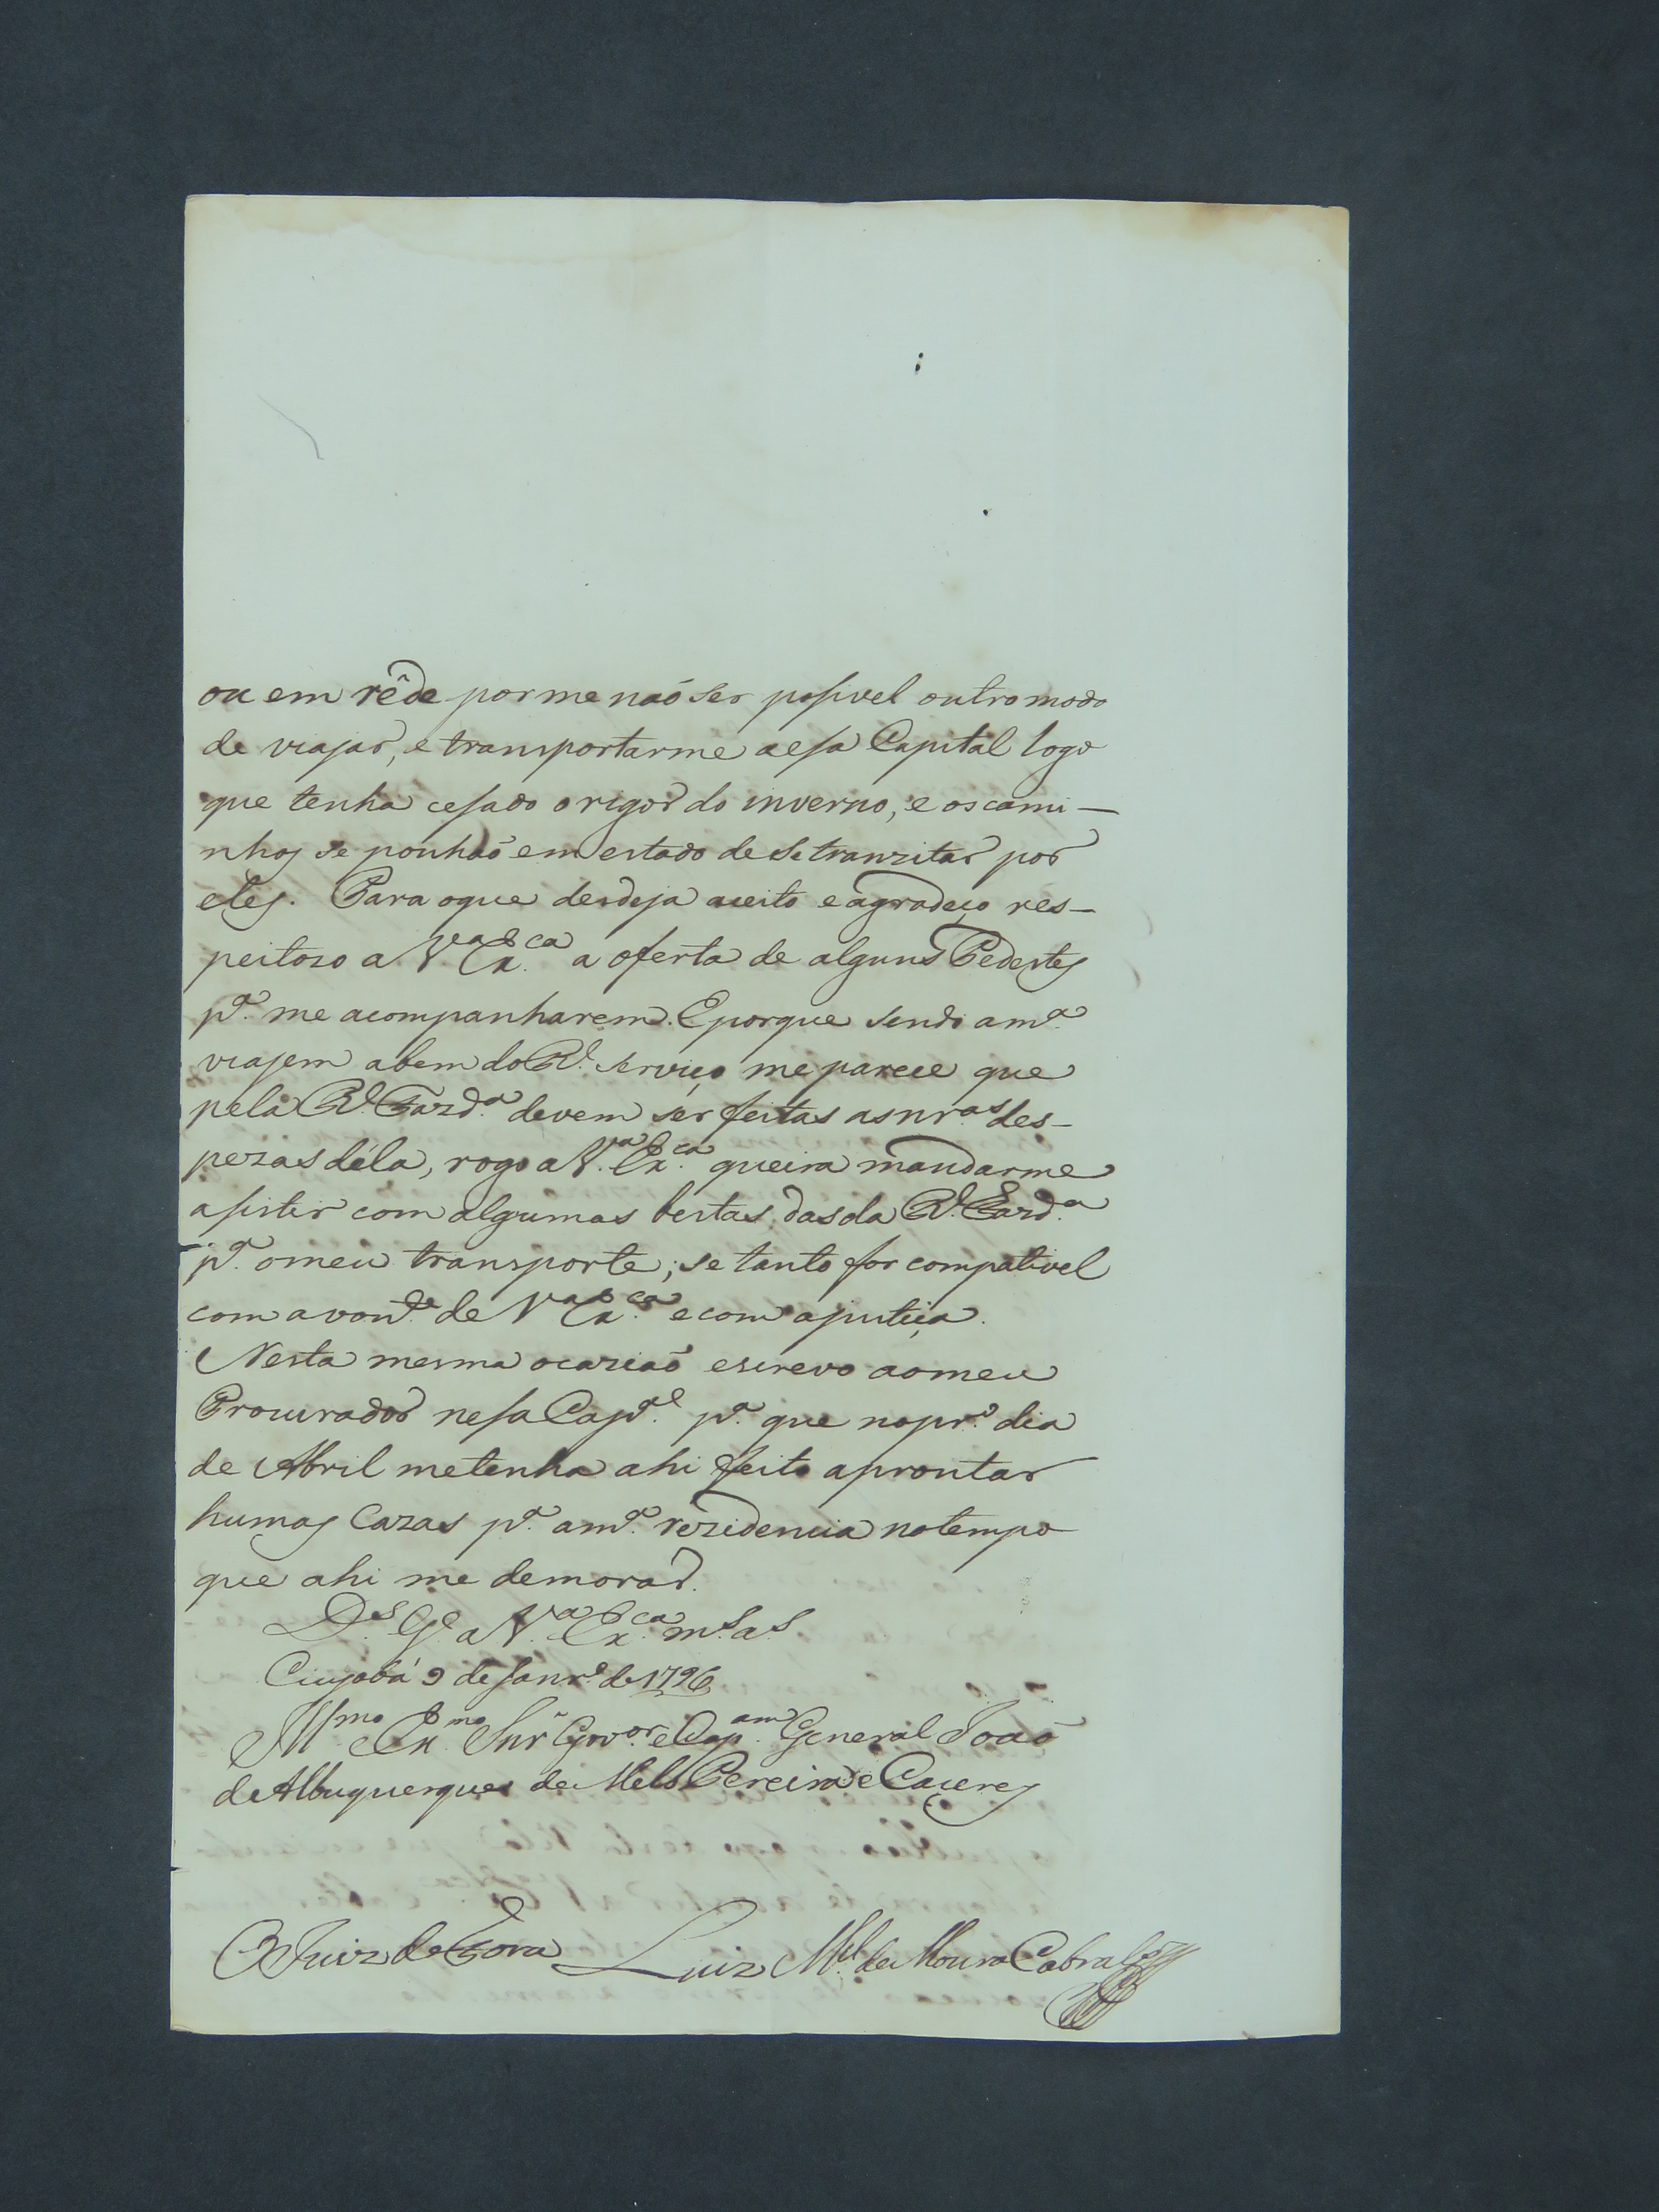 ou em rêde por me naõ ser posivel outro modo
de viajar, e transportarme a esa Capital logo
que tenha cesado o rigor do inverno, e os cami-
nhos se ponhaõ em estado de se tranzitar por
eles. Para o que desdeja aceito e agradeço res-
peitozo a V.ª Ex.ca a oferta de alguns Pedestes
p.ª me acompanharem. E porque sendo a m.ª
viajem a bem do R.l serviço me parece que
pela R.l Fazd.ª devem ser feitas as nr.as des-
pezas déla, rogo a V.ª Ex.ca queira mandarme
asistir com algumas bestas das da R.l Fazd.ª
p.ª o meu transporte, se tanto for compativel
com a vont.e de V.ª Ex.ca e com a justiça.
Nesta mesma ocaziaõ escrevo ao meu
Procurador nesa Cap.al p.ª que no pr.º dia
de Abril me tenha ahi feito aprontar
humas Cazas p.ª a m.ª rezidencia no tempo
que ahi me demorar.
D.s G.e a V.ª Ex.ca m.s a.s
Cuyabá 9 de Janr.º de 1796
Ill.mo Ex.mo Snr Gov.or e Cap.am General Joaõ
de Albuquerque de Melo Pereira e Caceres
O Juiz de Fora Luiz M.el de Moura Cabral